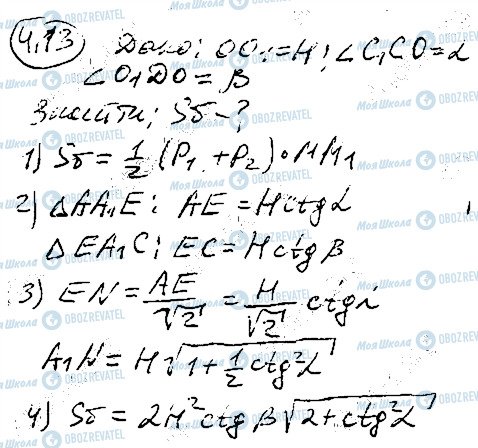 4.13 Дано: OO₁=H; ∠C₁CO=α
∠O₁DO=β
Знайти: Sб-?
1) Sб = 1/2 (P₁ + P₂) • MM₁
2) △AA₁E: AE = H ctg α
△EA₁C: EC = H ctg β
3) EN = AE/√2 = H/√2 ctg α
A₁N = H√(1 + 1/2 ctg²α)
4) Sб = 2H² ctg β √(2 + ctg²α)